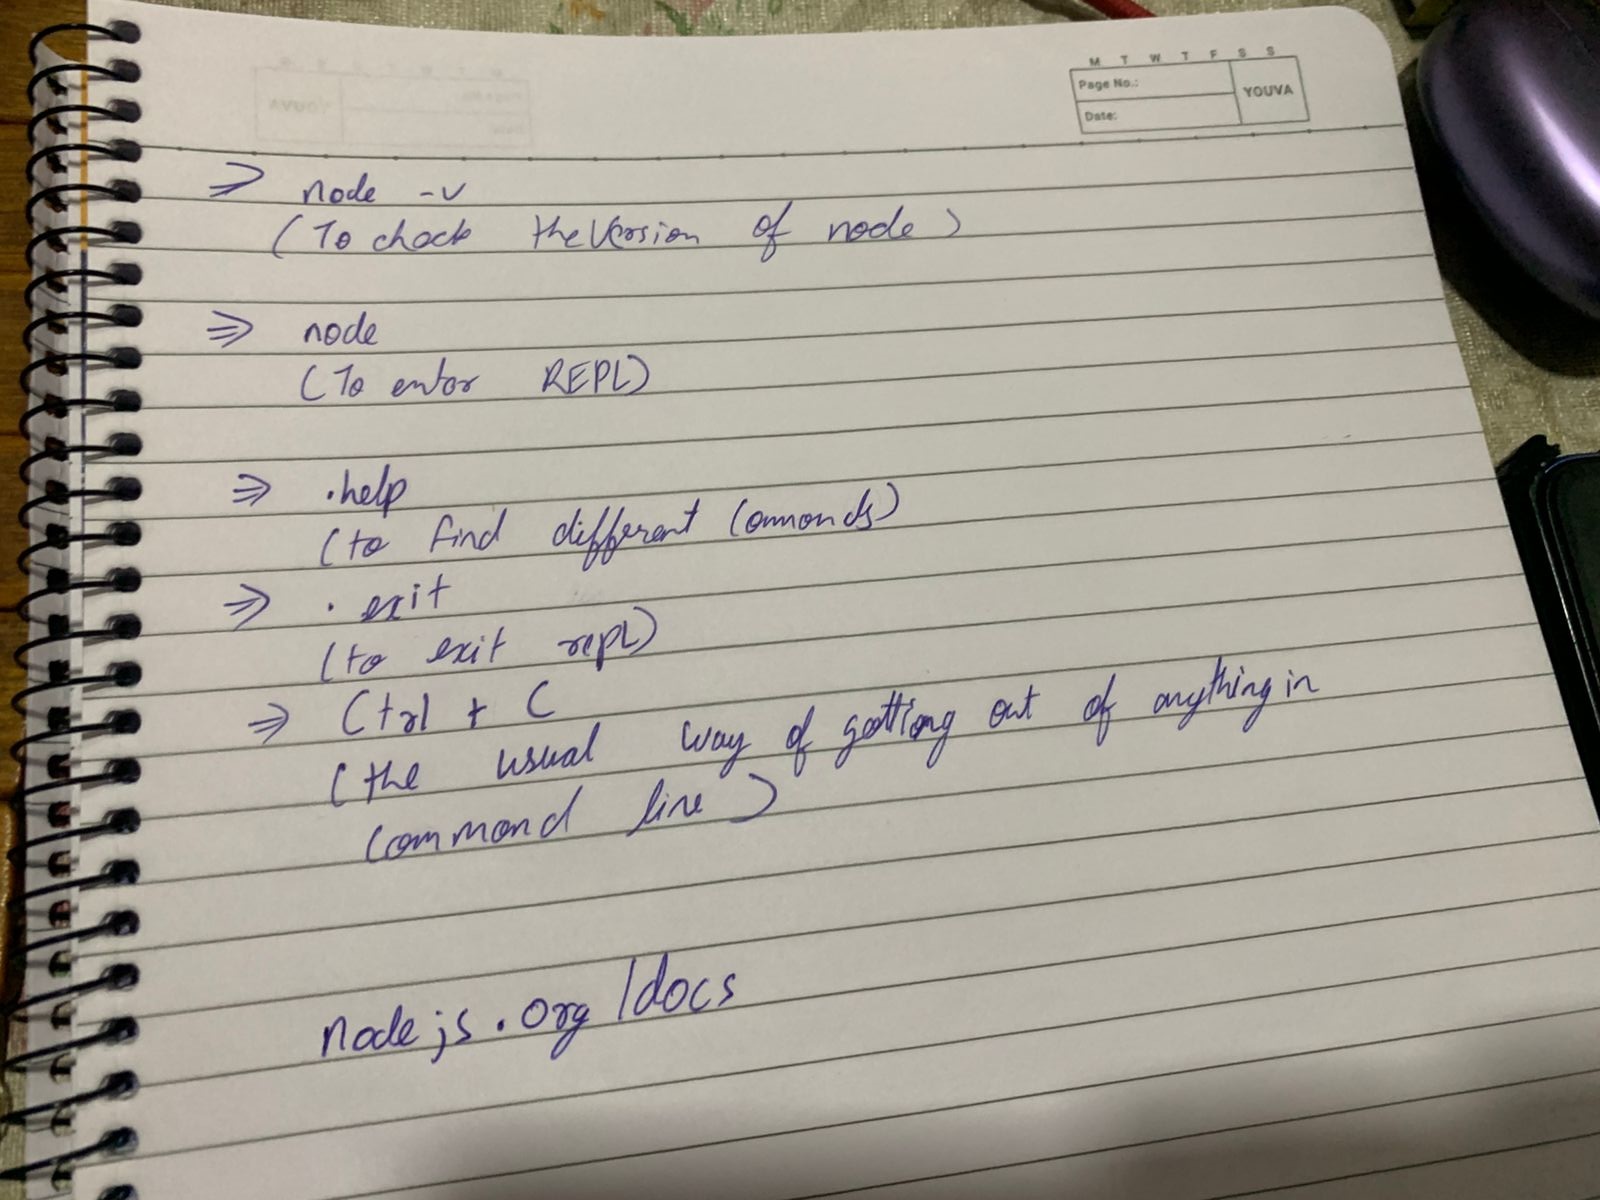 M T W T F S S
Page No.:
YOUVA
Date:
⇒ node -v
(To check the Version of node)
⇒ node
(To enter REPL)
⇒ .help
(to find different Commands)
⇒ . exit
(to exit repl)
⇒ Ctrl + C
(the usual way of getting out of anything in
Command line)
nodejs.org/docs